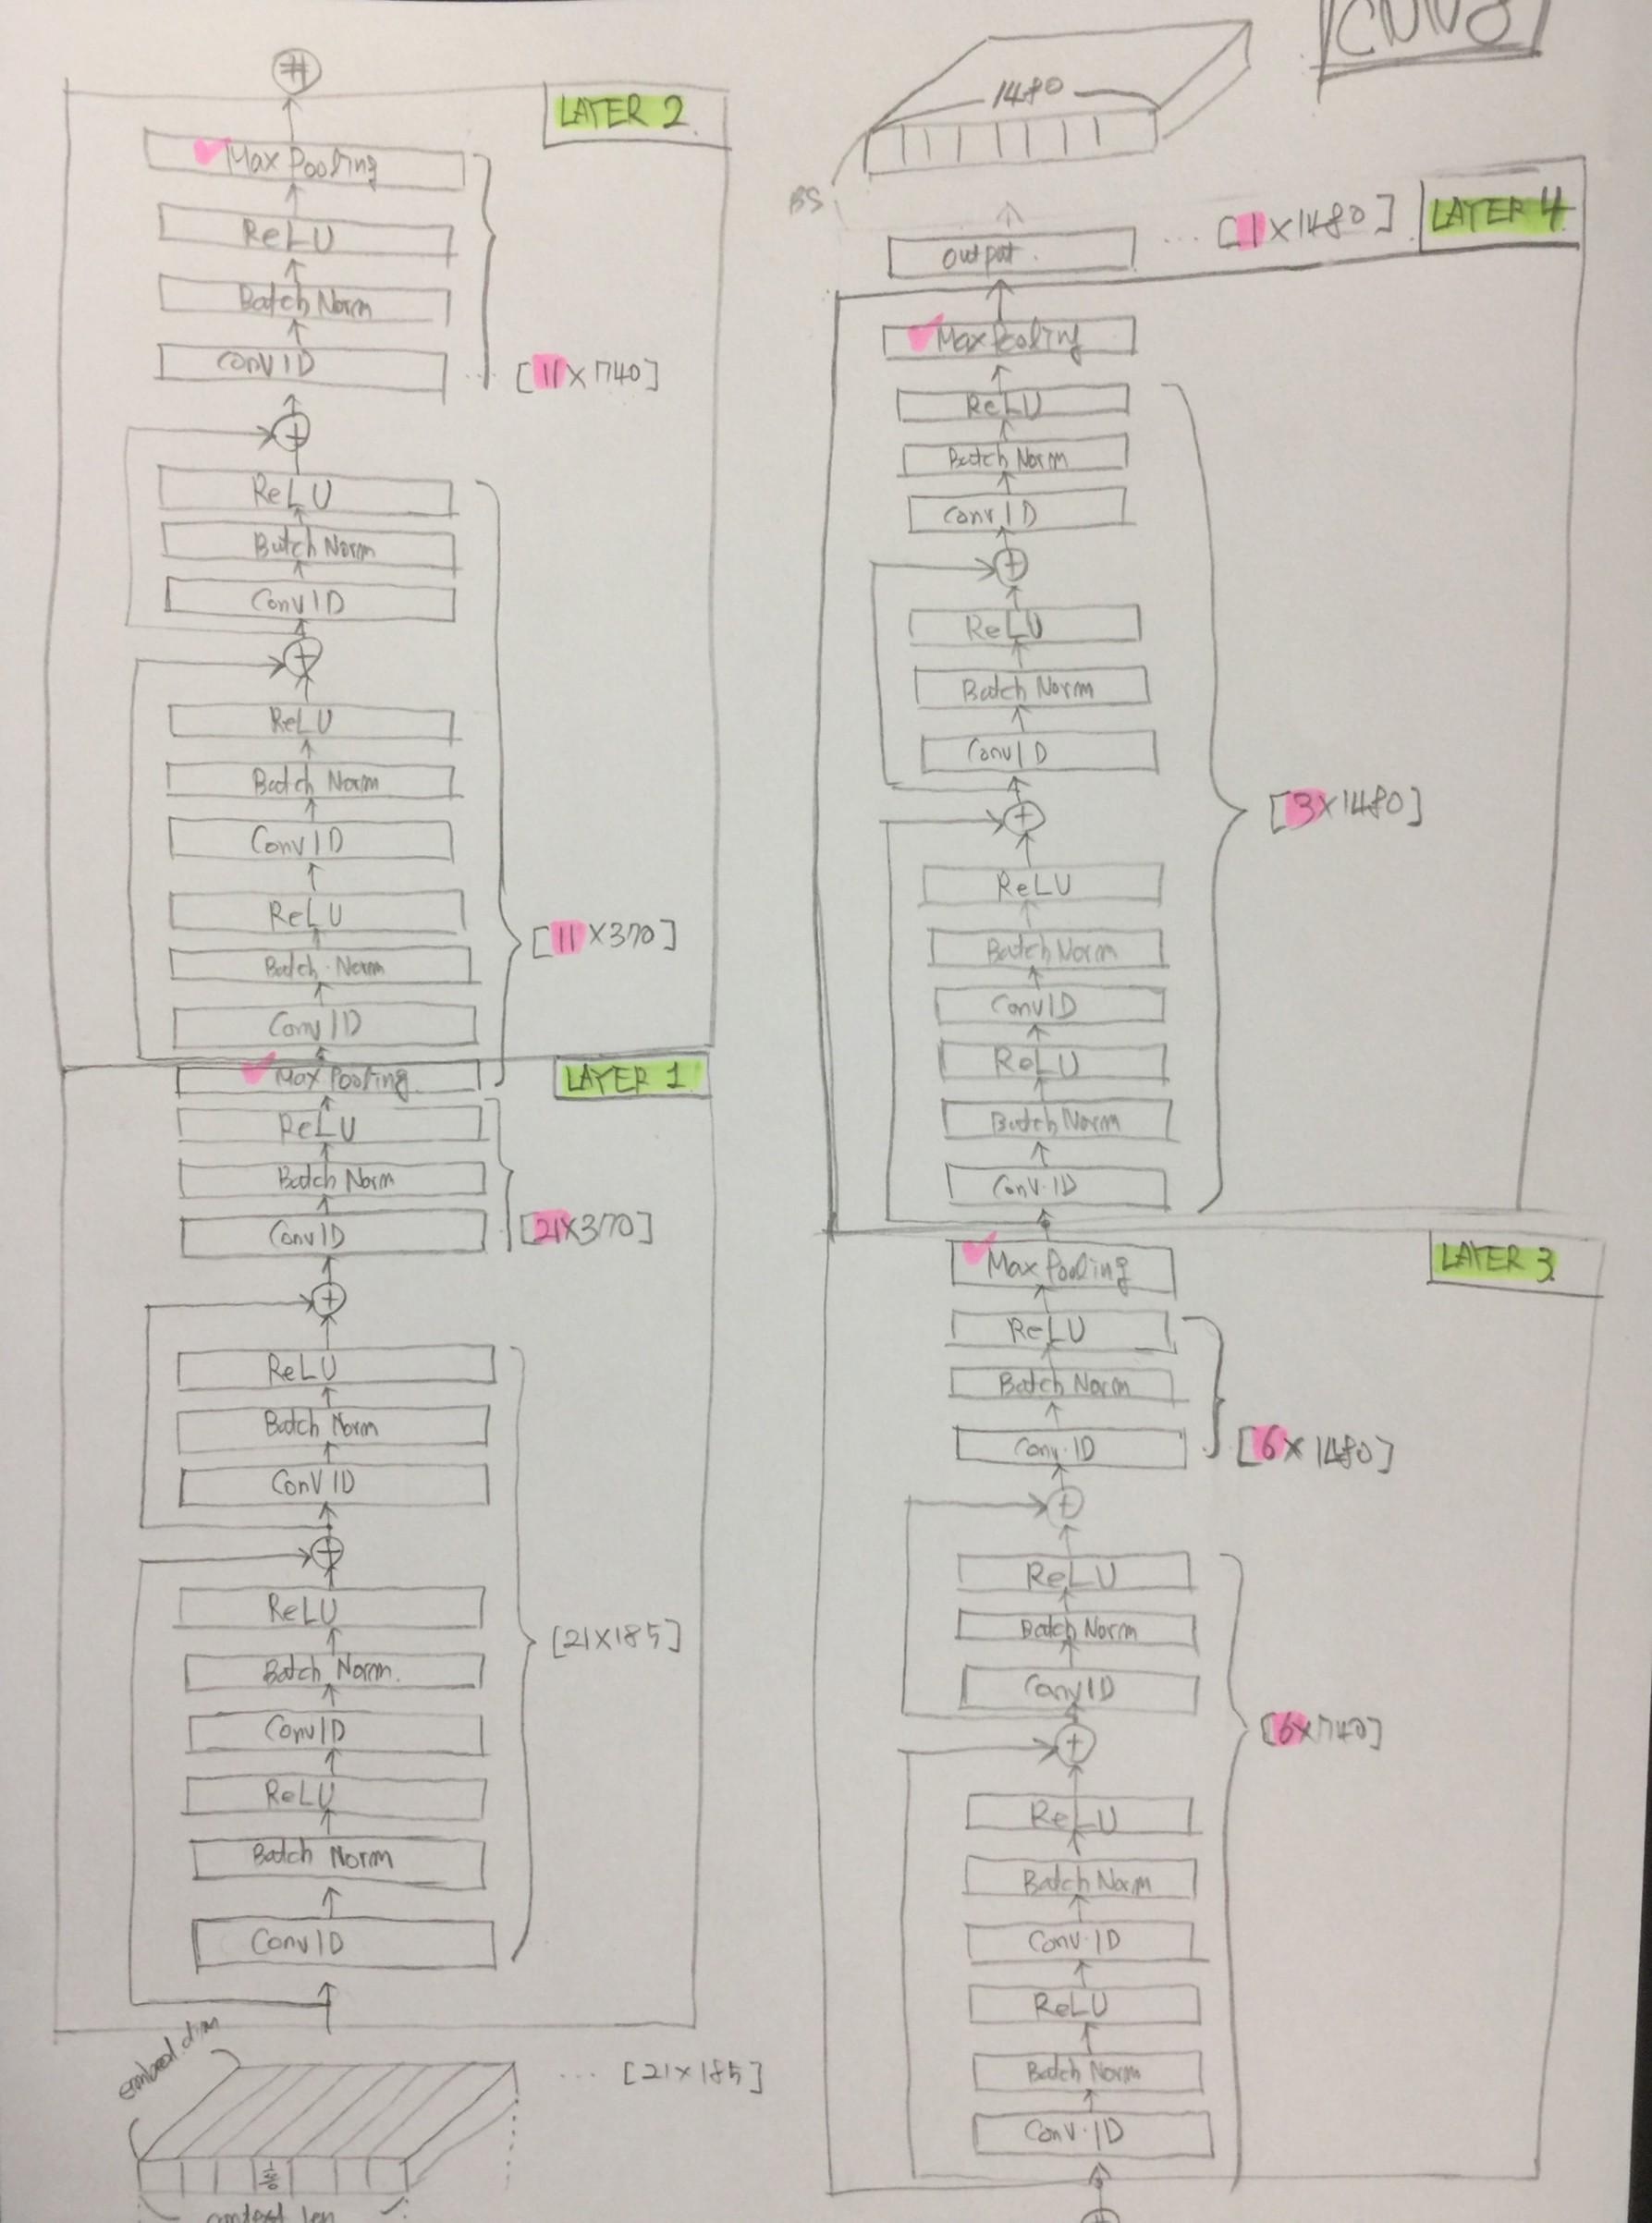 CNN8
#
LAYER 2
Max Pooling
ReLU
Batch Norm
Conv1D
[11×740]
+
ReLU
Batch Norm
Conv1D
+
ReLU
Batch Norm
Conv1D
[11×370]
ReLU
Batch Norm
Conv1D
LAYER 1
Max Pooling
ReLU
Batch Norm
Conv1D
[21×370]
+
ReLU
Batch Norm
Conv1D
+
ReLU
[21×185]
Batch Norm.
Conv1D
ReLU
Batch Norm
Conv1D
embed.dim
... [21×185]
context len
1480
BS
LAYER 4
output.
... [1×1480]
Max Pooling
ReLU
Batch Norm
Conv1D
+
ReLU
Batch Norm
Conv1D
[3×1480]
+
ReLU
Batch Norm
Conv1D
ReLU
Batch Norm
Conv·1D
LAYER 3
Max Pooling
ReLU
Batch Norm
Conv·1D
[6×1480]
+
ReLU
Batch Norm
Conv1D
[6×740]
+
ReLU
Batch Norm
Conv·1D
ReLU
Batch Norm
Conv·1D
#